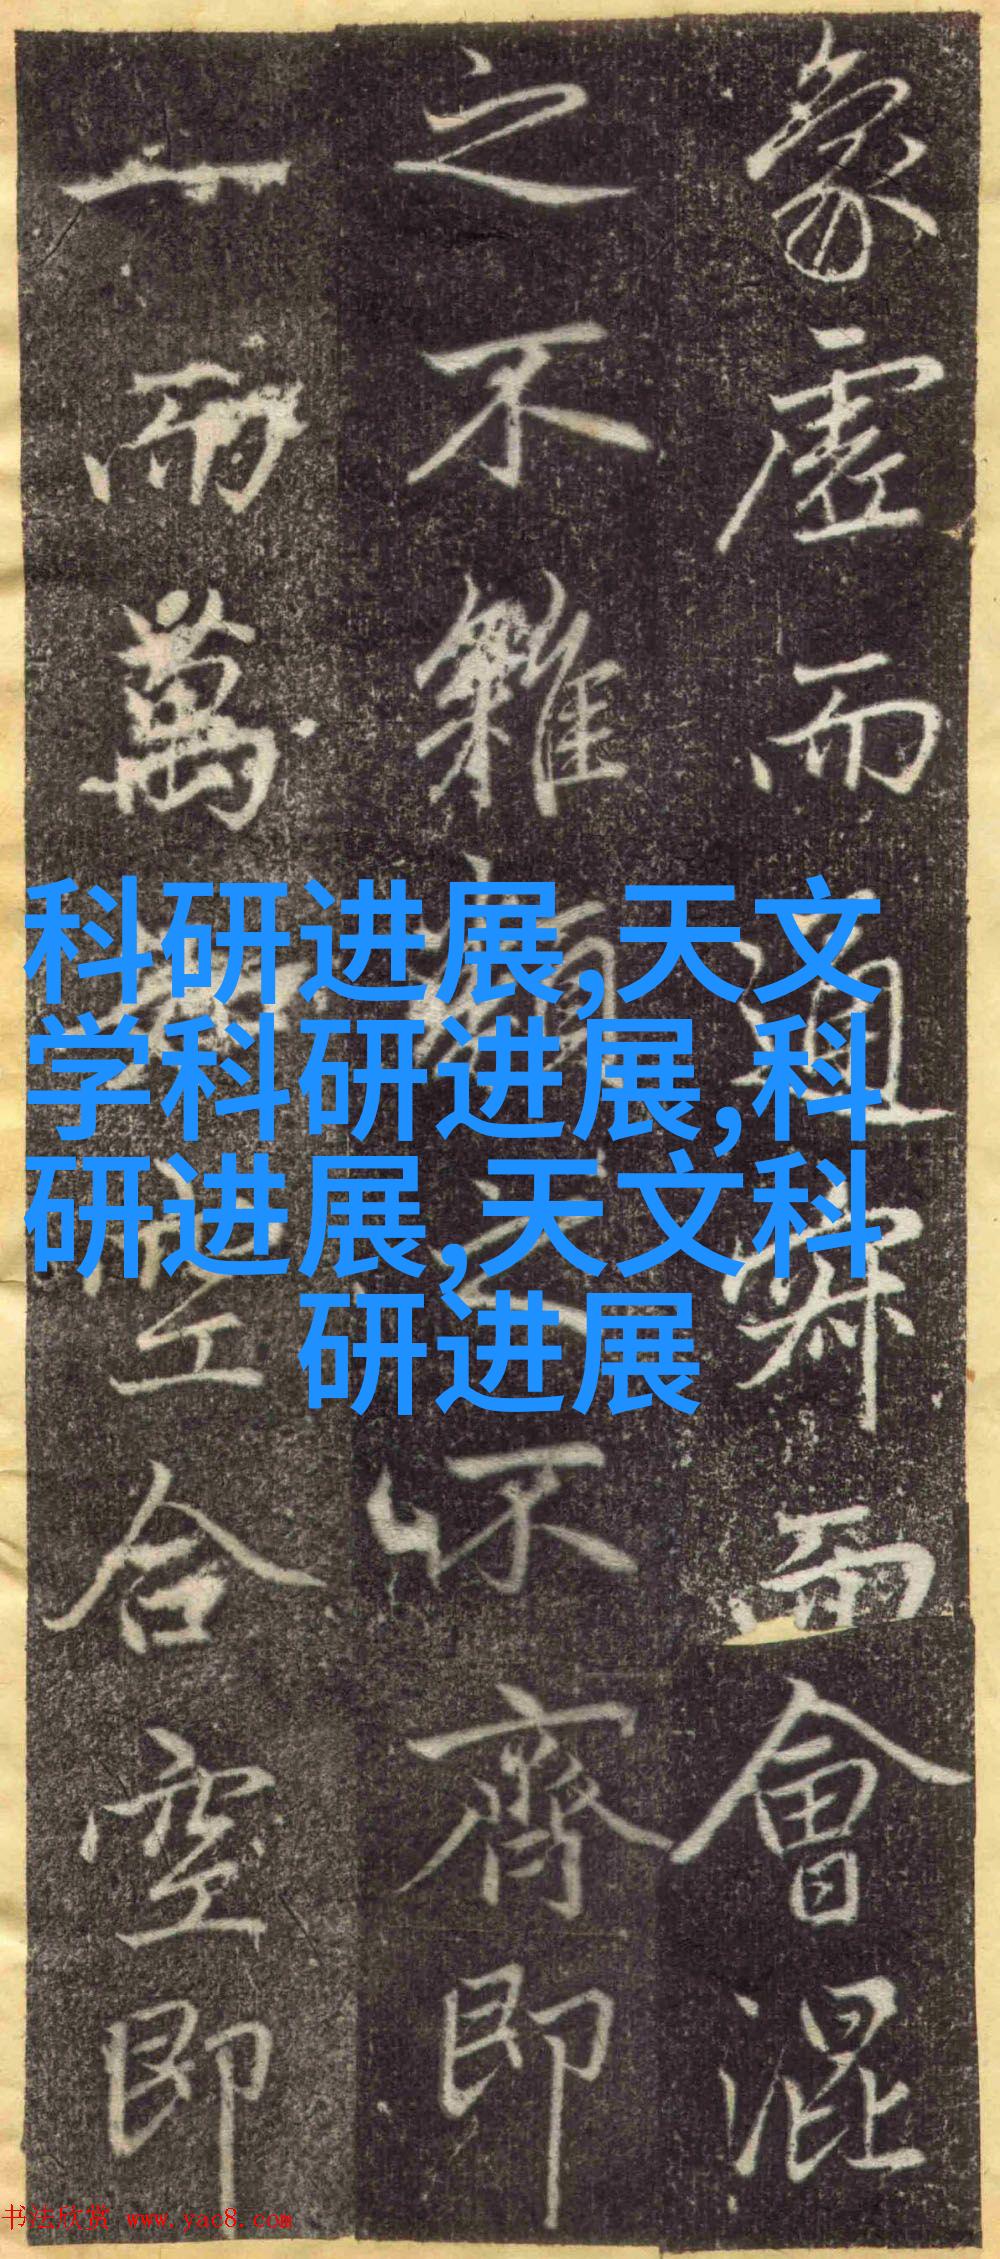 象虛而通寂而會混
之不雜類之不齊即
一而萬
空合空即
科研进展,天文
学科研进展,科
研进展,天文科
研进展
书法欣赏 www.yac8.com